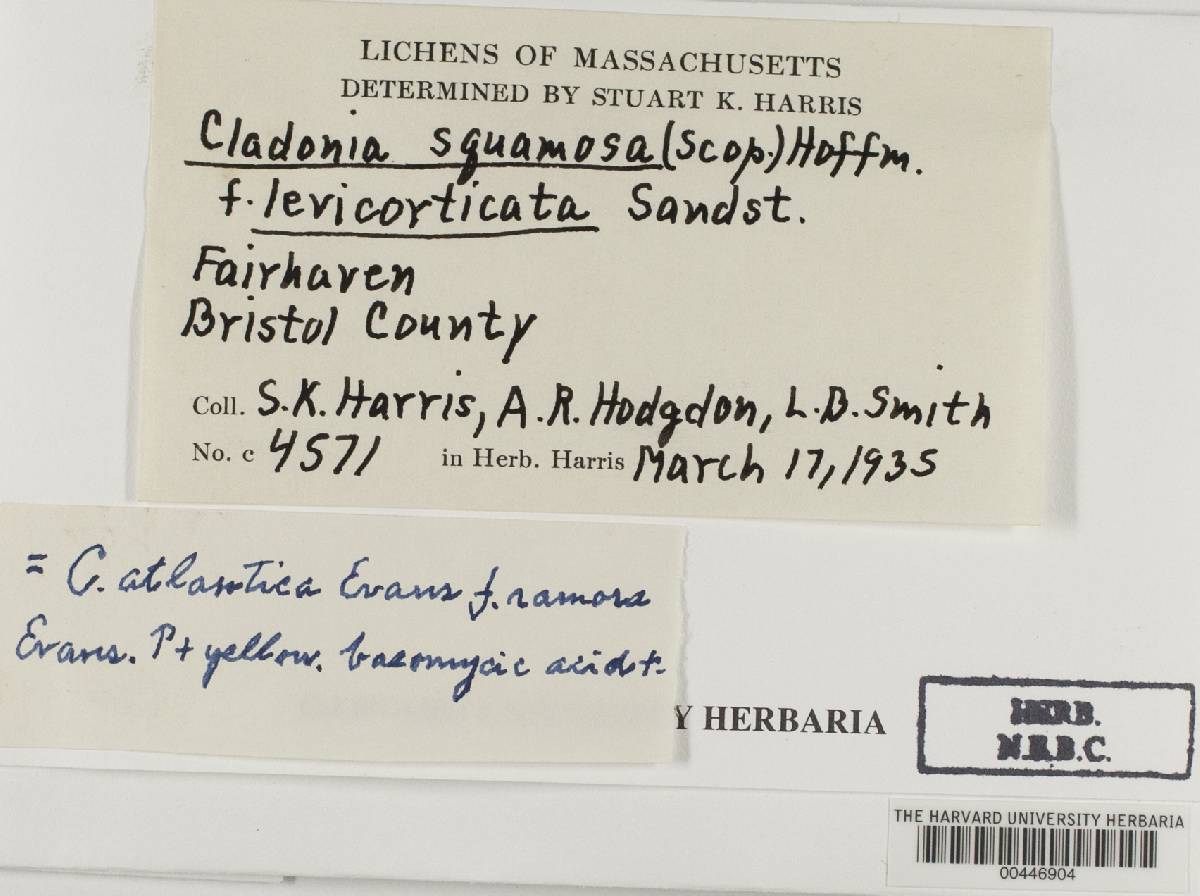 LICHENS OF MASSACHUSETTS
DETERMINED BY STUART K. HARRIS
Cladonia squamosa (Scop.) Hoffm.
f. levicorticata Sandst.
Fairhaven
Bristol County
Coll. S.K. Harris, A.R. Hodgdon, L.B. Smith
No. c 4571 in Herb. Harris March 17, 1935
= C. atlantica Evans f. ramosa
Evans. P+ yellow. baeomycic acid+.
Y HERBARIA
HERB.
N.E.B.C.
THE HARVARD UNIVERSITY HERBARIA
00446904